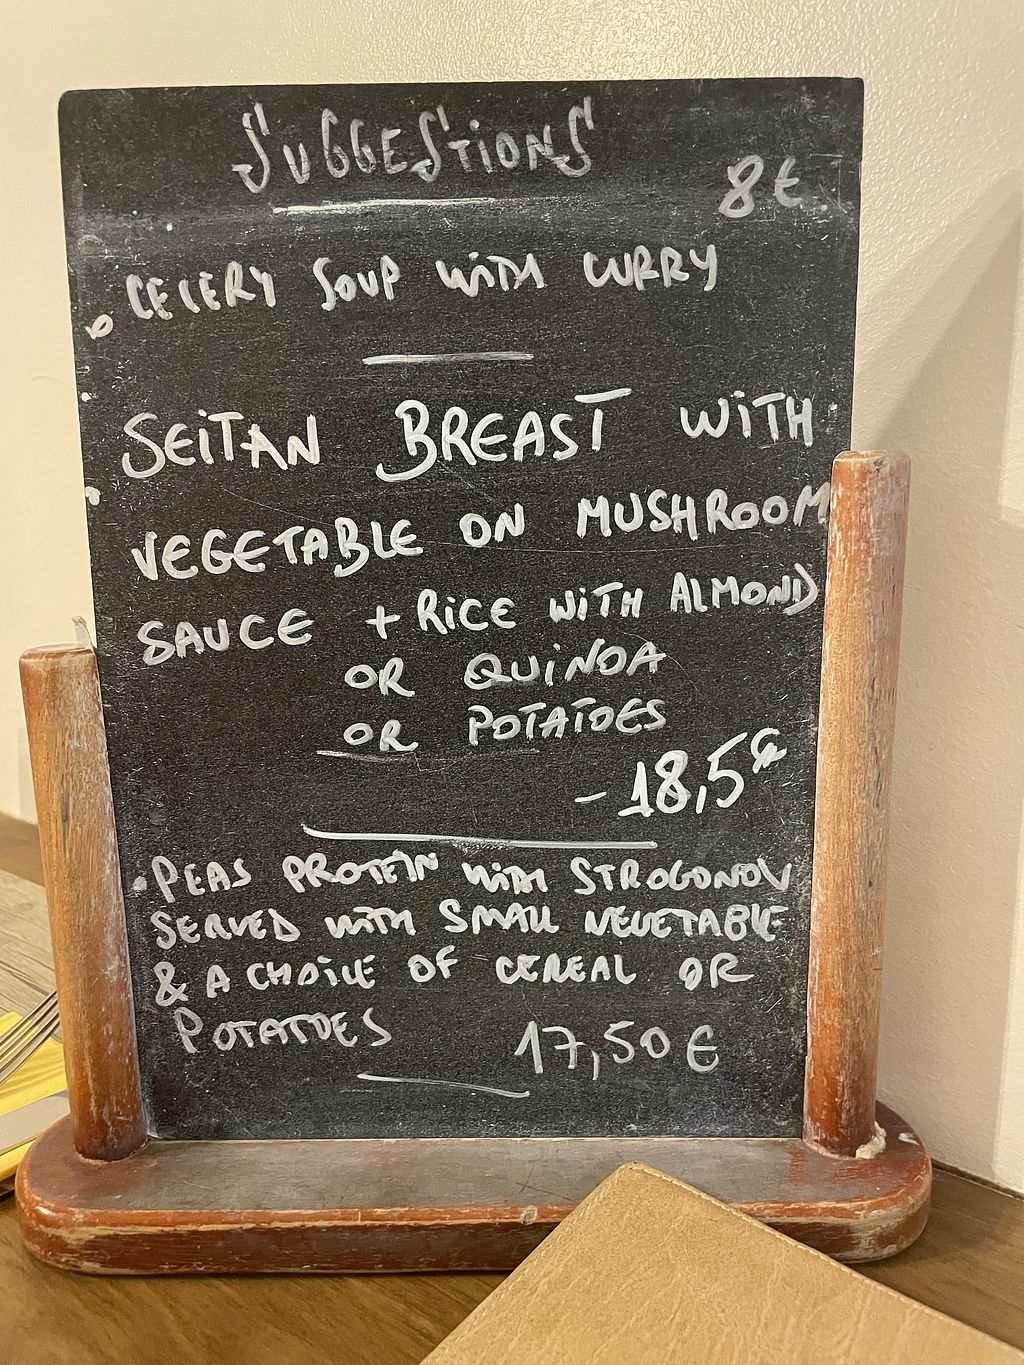 SUGGESTIONS
8€
CELERY SOUP WITH CURRY
SEITAN BREAST WITH
VEGETABLE ON MUSHROOM
SAUCE + RICE WITH ALMOND
OR QUINOA
OR POTATOES
- 18,5€
• PEAS PROTEIN WITH STROGONOV
SERVED WITH SMALL VEGETABLE
& A CHOICE OF CEREAL OR
POTATOES 17,50€